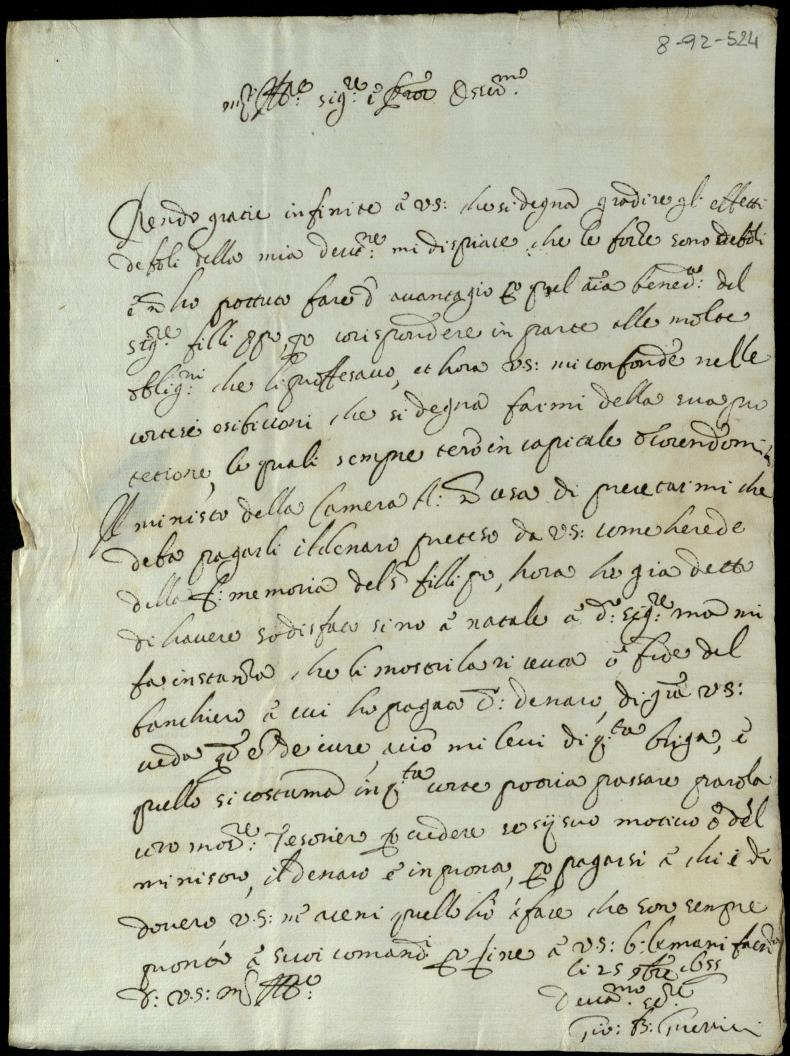 8-92-524
sig.re è
Rendo gratie infinite à vs: che si degna gradire gl' effetti
deboli della mia devot.ne mi dispiace, che le forze sono deboli
ho pottuto fare d' avantagio bened.a: del
sig.re fillippo, per corispondere in parte alle molte
oblig.ni che li proffesavo, et hora vs: mi confonde nelle
cortesi esibittioni che si degna farmi della sua pro
tetione, le quali sempre terò in capitale
Il ministro della Camera non cesa di precetarmi che
deba pagarli il denaro preteso da vs: come herede
della memoria del s.r fillippo, hora ho gia detto
di havere sodisfato sino à natale à d.o sig.re ma mi
fa instanza che li mostri la ricevuta ò fede del
banchiero à cui ho pagato d.o: denaro, di già vs:
veda de iure, acciò mi levi di q.ta briga, è
quello si costuma in q.ta corte potria passare parola
con mons.re: Tesoriero per vedere se sij suo motivo ò del
ministro, il denaro è in pronto, per pagarsi à chi è di
dovere v.s: m' aceni quello hò à fare che son sempre
pronto à suoi comandi per fine à vs: b: le mani
li 25 8bre 1655
D: v.s: m.
Devot.mo se.re
Gio: B: Guerrini